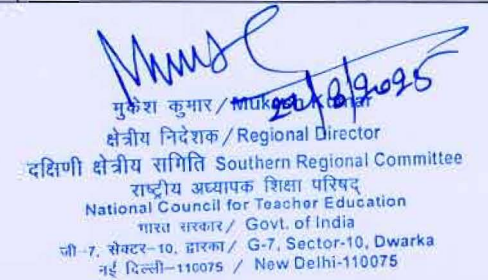 22/8/2025
मुकेश कुमार / Mukesh Kumar
क्षेत्रीय निदेशक / Regional Director
दक्षिणी क्षेत्रीय समिति Southern Regional Committee
राष्ट्रीय अध्यापक शिक्षा परिषद्
National Council for Teacher Education
भारत सरकार / Govt. of India
जी-7, सेक्टर-10, द्वारका / G-7, Sector-10, Dwarka
नई दिल्ली-110075 / New Delhi-110075